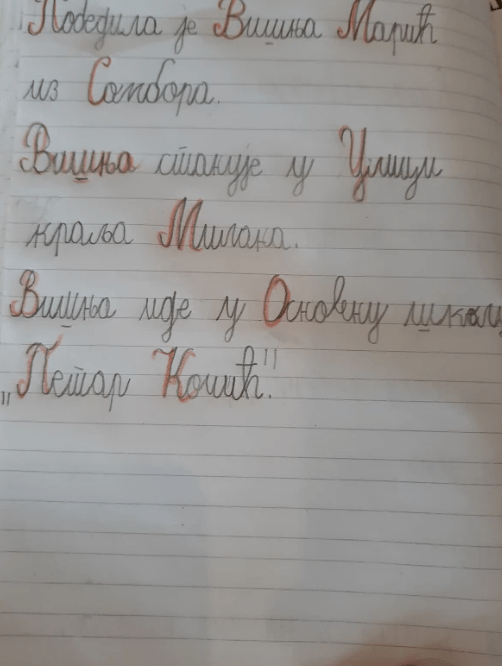 Победила је Вишња Марић
из Сомбора.
Вишња станује у Улици
краља Милана.
Вишња иде у Основну школу
„Петар Кочић".